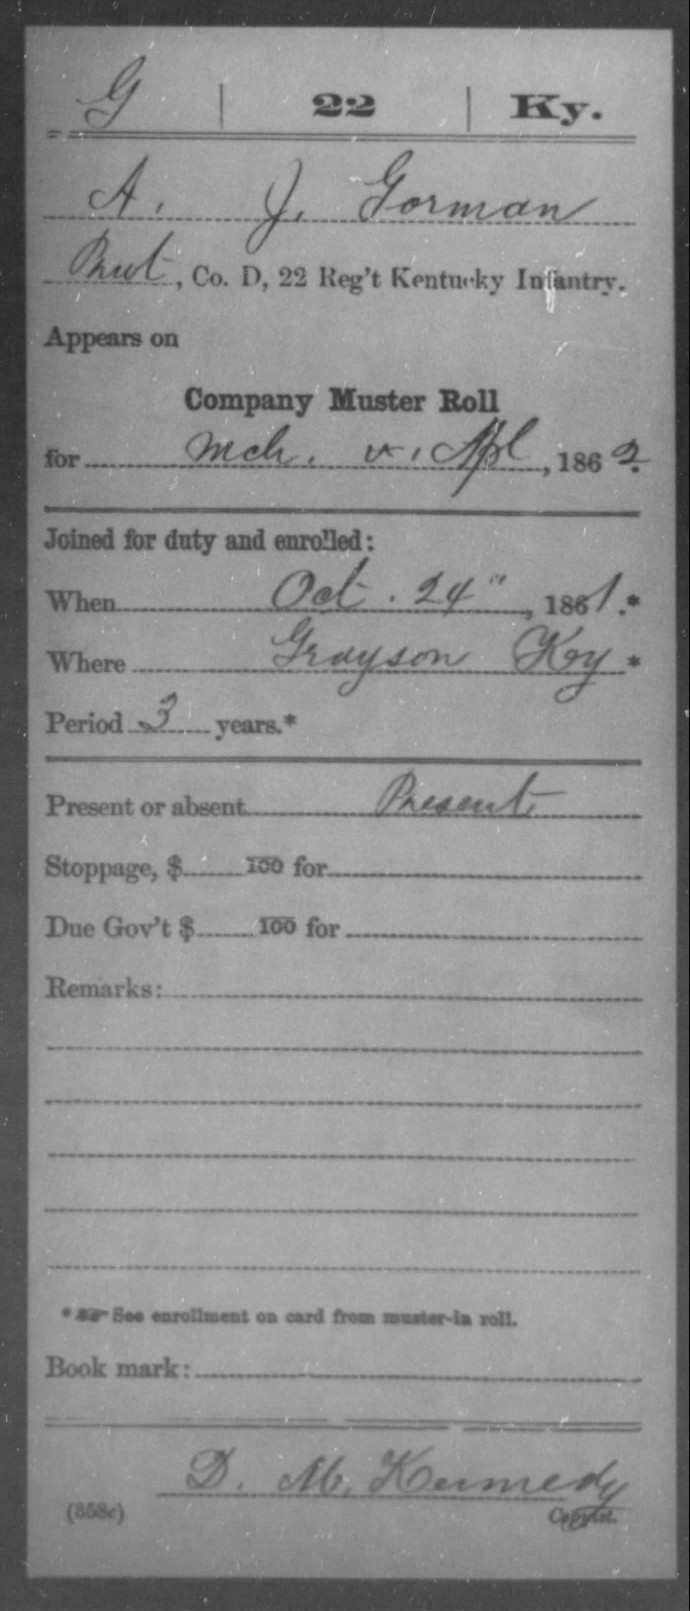 G | 22 | Ky.
A. J. Gorman
Pvt, Co. D, 22 Reg't Kentucky Infantry.
Appears on
Company Muster Roll
for Mch. & Apl, 1862.
Joined for duty and enrolled:
When Oct. 24", 1861.*
Where Grayson Ky *
Period 3 years.*
Present or absent Present
Stoppage, $ 100 for
Due Gov't $ 100 for
Remarks:
* See enrollment on card from muster-in roll.
Book mark:
D. M. Kennedy
(358c) Copyist.